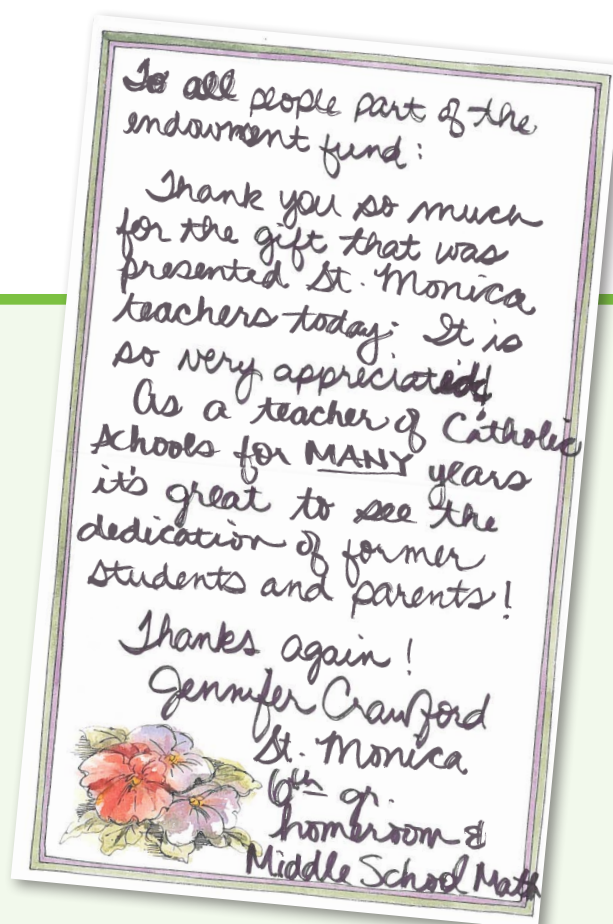 To all people part of the
endowment fund:
Thank you so much
for the gift that was
presented St. Monica
teachers today. It is
so very appreciated!
As a teacher of Catholic
schools for MANY years
it's great to see the
dedication of former
students and parents!
Thanks again!
Jennifer Crawford
St. Monica
6th gr.
homeroom &
Middle School Math